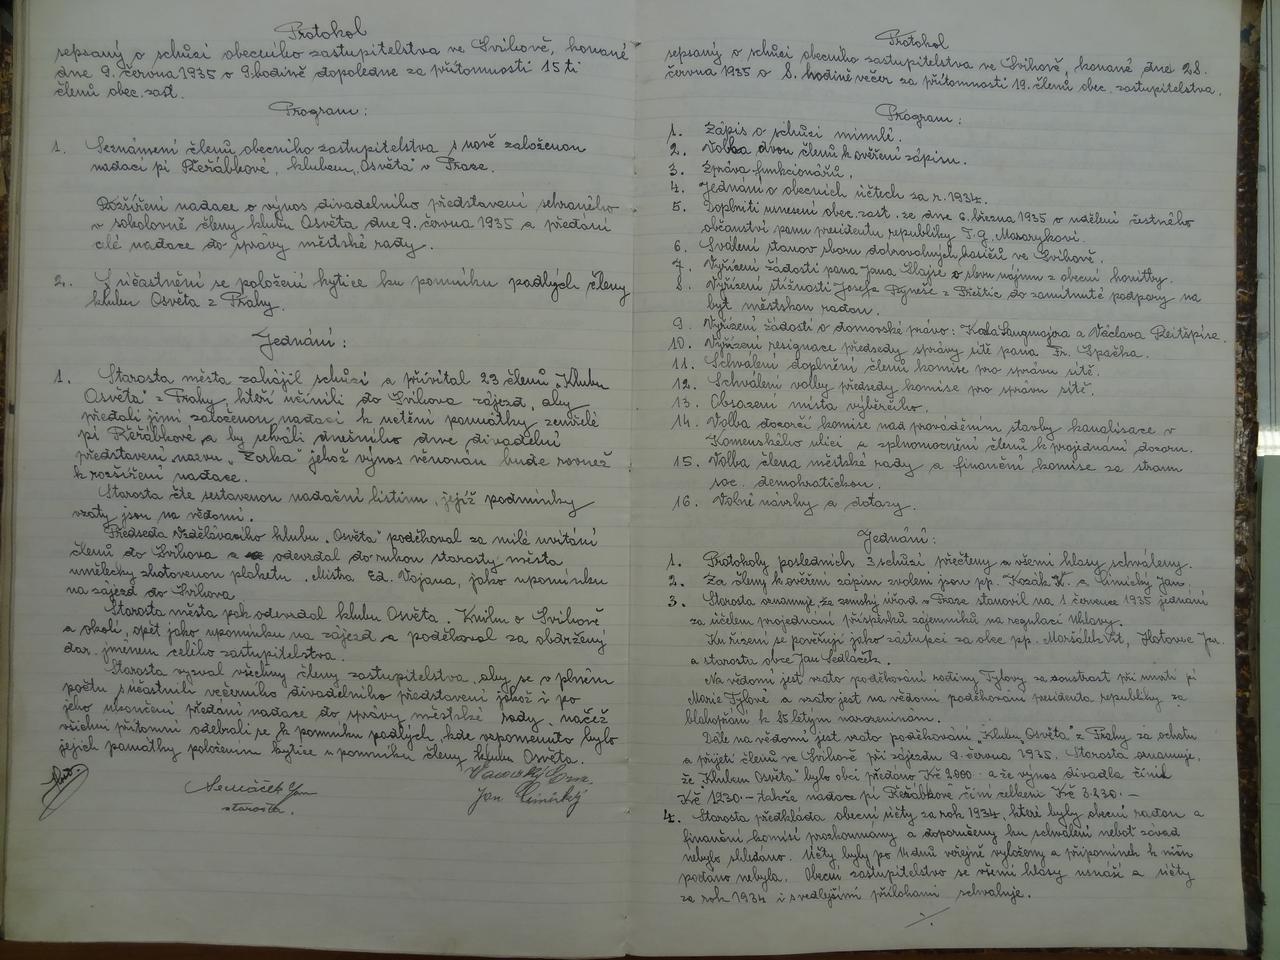 Protokol
sepsaný o schůzi obecního zastupitelstva ve Švihově, konané
dne 9. června 1935 o 9. hodině dopoledne za přítomnosti 15 ti
členů obec. zast.
Program:
1. Seznámení členů obecního zastupitelstva s nově založenou
nadací pí Řeřábkové, klubem „Osvěta" v Praze.
Rozšíření nadace o výnos divadelního představení sehraného
v sokolovně členy klubu Osvěta dne 9. června 1935 a předání
celé nadace do správy městské rady.
2. Súčastnění se položení kytice ku pomníku padlých členy
klubu Osvěta z Prahy.
Jednání:
1. Starosta města zahájil schůzi a přivítal 23 členů „Klubu
Osvěta" z Prahy, kteří učinili do Švihova zájezd, aby
předali jimi založenou nadaci k uctění památky zemřelé
pí Řeřábkové a by sehráli dnešního dne divadelní
představení názvu „Zorka" jehož výnos věnován bude rovněž
k rozšíření nadace.
Starosta čte sestavenou nadační listinu, jejíž podmínky
vzaty jsou na vědomí.
Předseda Vzdělávacího klubu „Osvěta" poděkoval za milé uvítání
členů do Švihova a odevzdal do rukou starosty města
umělecky zhotovenou plaketu „Mistra Ed. Vojana, jako upomínku
na zájezd do Švihova
Starosta města pak odevzdal klubu Osvěta „Knihu o Švihově
a okolí, opět jako upomínku na zájezd a poděkoval za obdržený
dar jménem celého zastupitelstva.
Starosta vyzval všechny členy zastupitelstva, aby se v plném
počtu súčastnili večerního divadelního představení jakož i po
jeho ukončení předání nadace do správy městské rady, načež
všichni přítomní odebrali se k pomníku padlých, kde vzpomenuto bylo
jejich památky položením kytice u pomníku členy klubu Osvěta.
starosta.
Protokol
sepsaný o schůzi obecního zastupitelstva ve Švihově, konané dne 28.
června 1935 o 8. hodině večer za přítomnosti 19. členů obec. zastupitelstva.
Program:
1. Zápis o schůzi minulé.
2. Volba dvou členů k ověření zápisu.
3. Zpráva funkcionářů.
4. Jednání o obecních účtech za r. 1934.
5. Doplniti usnesení obec. zast. ze dne 6. března 1935 o udělení čestného
občanství panu presidentu republiky T. G. Masarykovi.
6. Sválení stanov sboru dobrovolných hasičů ve Švihově.
7. Vyřízení žádosti pana Jana o slevu nájmu z obecní honitby.
8. Vyřízení stížnosti Josefa z Přeštic do zamítnuté podpory na
byt městskou radou.
9. Vyřízení žádostí o domovské právo: Karla Langmajera a Václava
10. Vyřízení resignace předsedy správy sítě pana Fr. Špačka.
11. Schválení doplnění členů komise pro správu sítě.
12. Schválení volby předsedy komise pro správu sítě.
13. Obsazení místa výběrčího.
14. Volba dozorčí komise nad prováděním stavby kanalisace v
Komenského ulici a zplnomocnění členů k projednání dozoru.
15. Volba člena městské rady a finanční komise za stranu
soc. demokratickou.
16. Volné návrhy a dotazy.
Jednání:
1. Protokoly posledních 2 schůzí přečteny a všemi hlasy schváleny.
2. Za členy k ověření zápisu zvoleni jsou pp. Kozák K. a Jan.
3. Starosta oznamuje, že zemský úřad v Praze stanovil na 1 července 1935 jednání
za účelem projednání příspěvků zájemníků na regulaci Úhlavy.
Ku řízení se pověřují jako zástupci za obec pp. Maršálek Vít, Jan
a starosta obce Jan Sedláček.
Na vědomí jest vzato poděkování rodiny Tylovy za soustrast při úmrtí pí
Marie Tylové a vzato jest na vědomí poděkování presidenta republiky za
blahopřání k 85 letým narozeninám.
Dále na vědomí jest vzato poděkování „Klubu Osvěta" z Prahy za ochotu
a přijetí členů ve Švihově při zájezdu 9. června 1935. Starosta oznamuje,
že „Klubem Osvěta" bylo obci předáno Kč 2000.- a že výnos divadla činil
Kč 1230.- takže nadace pí Řeřábkové činí celkem Kč 3.230.-
4. Starosta předkládá obecní účty za rok 1934, které byly obecní radou a
finanční komisí prozkoumány a doporučeny ku schválení neboť závad
nebylo shledáno. Účty byly po 14 dnů veřejně vyloženy a připomínek k nim
podáno nebylo. Obecní zastupitelstvo se všemi hlasy usnáší a účty
za rok 1934 i s vedlejšími přílohami schvaluje.
./.